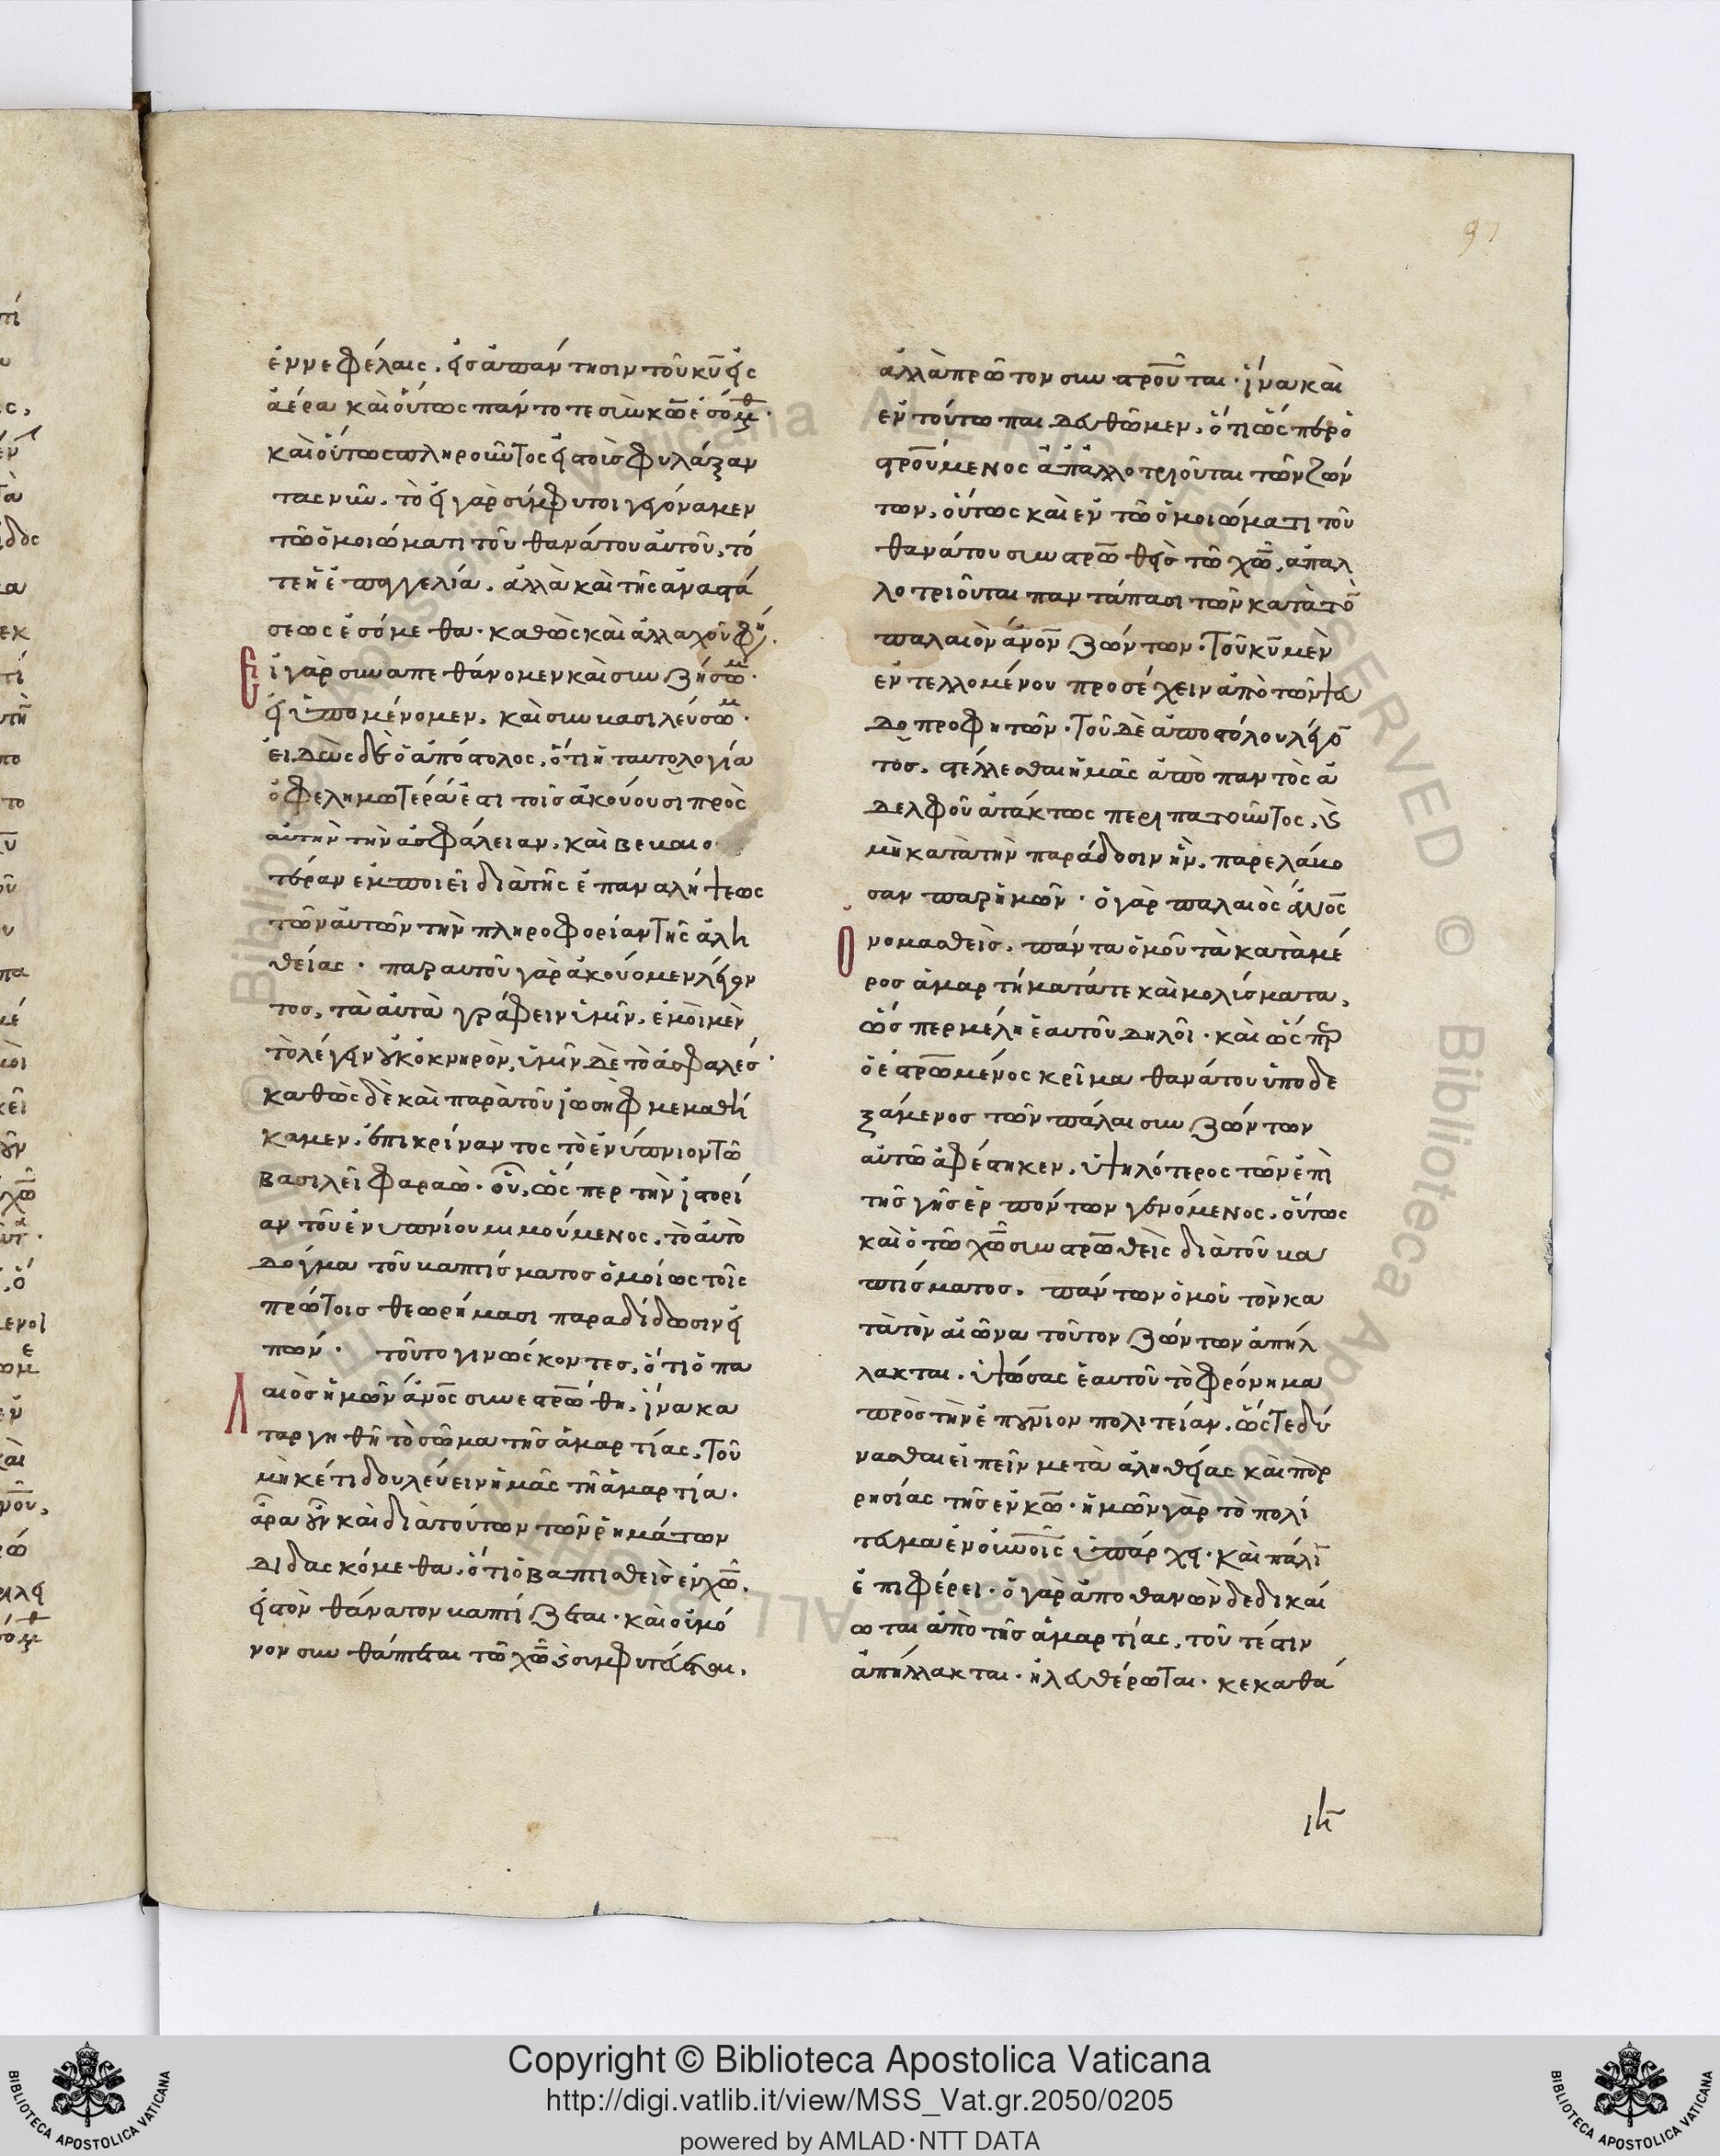 ἐν νεφέλαις. εἰς ἀπάντησιν τοῦ κυ εἰς
ἀέρα καὶ οὕτως πάντοτε σὺν κω ἐσόμεθ·
καὶ οὕτως πληροῦντος ἐν τοῖς φυλάξαν
τὸ εἰ γὰρ σύμφυτοι γεγόναμεν
τῶ ὁμοιώματι τοῦ θανάτου αὐτοῦ. τό
τε ἡ ἐπαγγελία. ἀλλὰ καὶ τῆς ἀναστά
σεως ἐσόμεθα· καθὼς καὶ ἀλλαχοῦ φη.
εἰ γὰρ συναπεθάνομεν καὶ συνζήσωμ·
εἰ ὑπομένομεν. καὶ συμβασιλεύσωμ·
εἰδὼς δὲ ὁ ἀπόστολος. ὅτι ἡ ταυτολογία
ὠφελημωτέρα ἐστὶ τοῖς ἀκούουσι πρὸς
αὐτὴν τὴν ἀσφάλειαν. καὶ βεβαιο
τέραν ἐμποιεῖ διὰ τῆς ἐπαναλήψεως
τῶν αὐτῶν τὴν πληροφορίαν τῆς ἀλη
θείας· παρ αὐτοῦ γὰρ ἀκούομεν λέγον
τος. τὰ αὐτὰ γράφειν ὑμῖν. ἐμοὶ μὲν
τὸ λέγειν οὐκ ὀκνηρὸν. ὑμῖν δὲ τὸ ἀσφαλές·
καθὼς δὲ καὶ παρὰ τοῦ ἰωσὴφ μεμαθή
καμεν. ἐπικρίναντος τὸ ἐνύπνιον τῶ
βασιλεῖ φαραὼ· οὗ. ὥσπερ τὴν ἱστορί
αν τοῦ ἐνυπνίου μιμούμενος. τὸ αὐτὸ
δόγμα τοῦ βαπτίσματος ὁμοίως τοῖς
πρώτοις θεωρήμασι παραδίδωσιν εἰ
πών· τοῦτο γινώσκοντες. ὅτι ὁ πα
λαιὸς ἡμῶν ἄνος συνεστρώθη. ἵνα κα
ταργηθῆ τὸ σῶμα τῆς ἁμαρτίας. τοῦ
μηκέτι δουλεύειν ἡμᾶς τῆ ἁμαρτία·
ἄρα οὖν καὶ διὰ τούτων τῶν ῥημάτων
διδασκόμεθα. ὅτι ὁ βαπτισθεὶς ἐν χω.
εἰς τὸν θάνατον βαπτίζεται· καὶ οὐ μό
νον συνθάπτεται τῶ χω καὶ συμφυτεύεται.
ἀλλὰ πρῶτον συνστροῦται· ἵνα καὶ
ἐν τούτω παιδευθῶμεν. ὅτι ὥσπερ ὁ
στρούμενος ἀπαλλοτριοῦται τῶν ζών
των. οὕτως καὶ ἐν τῶ ὁμοιώματι τοῦ
θανάτου συνστρωθεὶς τῶ χω. ἀπαλ
λοτριοῦται παντάπασι τῶν κατὰ τὸ
παλαιὸν ἄνον ζώντων· τοῦ κυ μὲν
ἐντελλομένου προσέχειν ἀπὸ τῶν ψευ
δοπροφητῶν· τοῦ δὲ ἀποστόλου λέγο
τος. στέλλεσθαι ἡμᾶς ἀπὸ παντὸς ἀ
δελφοῦ ἀτάκτως περιπατοῦντος. καὶ
μὴ κατὰ τὴν παράδοσιν ἣν. παρελάβο
σαν παρ ἡμῶν· ὁ γὰρ παλαιὸς ἄνος
ὀνομασθεὶς. πάντα ὁμοῦ τὰ κατὰ μέ
ρος ἁμαρτήματά τε καὶ μολίσματα.
ὥσπερ μέλη ἑαυτοῦ δηλοῖ· καὶ ὥσπερ
ὁ ἐστρωμένος κρῖμα θανάτου ὑποδε
ξάμενος τῶν πάλαι συνζώντων
αὐτῶ ἀφέστηκεν. ὑψηλότερος τῶν ἐπὶ
τῆς γῆς ἑρπόντων γενόμενος. οὕτως
καὶ ὁ τῶ χω συνστρωθεὶς διὰ τοῦ βα
πτίσματος. πάντων ὁμοῦ τὸν κα
τὰ τὸν αἰῶνα τοῦτον ζώντων ἀπήλ
λακται. ὑψώσας ἑαυτοῦ τὸ φρόνημα
πρὸς τὴν ἐπουνιον πολιτείαν. ὥστε δύ
νασθαι εἰπεῖν μετὰ ἀληθείας καὶ παρ
ρησίας τῆς ἐν κω· ἡμῶν γὰρ τὸ πολί
τευμα ἐν οὐνοῖς ὑπάρχει· καὶ πάλι
ἐπιφέρει· ὁ γὰρ ἀποθανὼν δεδικαί
ωται ἀπὸ τῆς ἁμαρτίας. τοῦτέστιν
ἀπήλλακται· ἠλευθέρωται· κεκαθά
97
Copyright © Biblioteca Apostolica Vaticana
http://digi.vatlib.it/view/MSS_Vat.gr.2050/0205
powered by AMLAD·NTT DATA
BIBLIOTECA APOSTOLICA VATICANA
BIBLIOTECA APOSTOLICA VATICANA